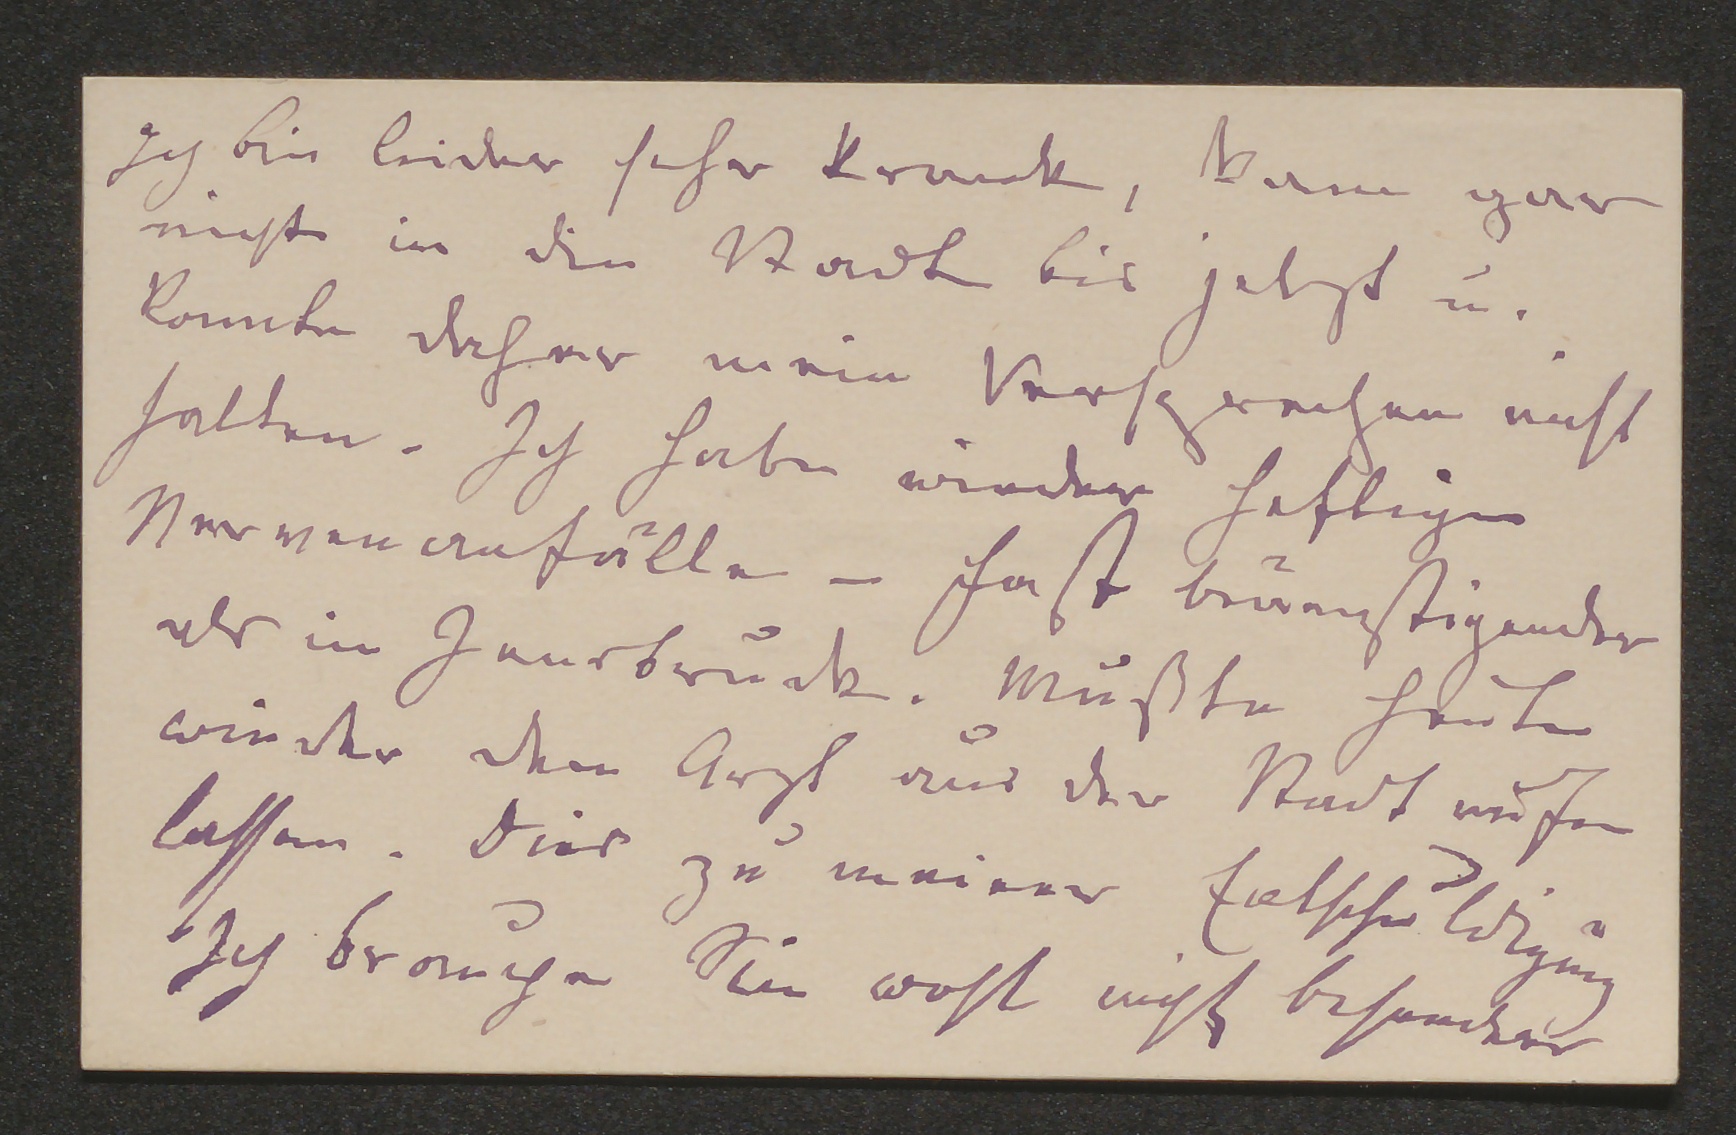 Ich bin leider sehr krank, kam gar
nicht in die Stadt bis jetzt u.
konnte daher mein Versprechen nicht
halten. Ich habe wieder heftige
Nervenanfälle – fast beängstigender
als in Innsbruck. Mußte heute
wieder den Arzt aus der Stadt rufen
lassen. Dies zu meiner Entschuldigung
Ich brauche Sie wohl nicht besonders